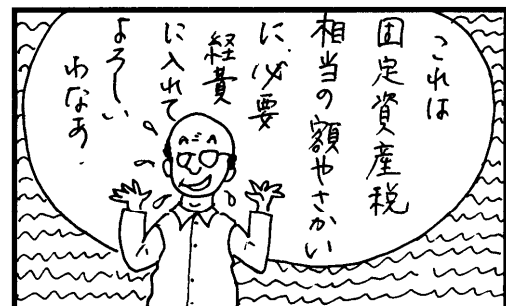 これは
固定資産税
相当の額やさかい
に、必要
経費
に入れて
よろしい
わなあ.